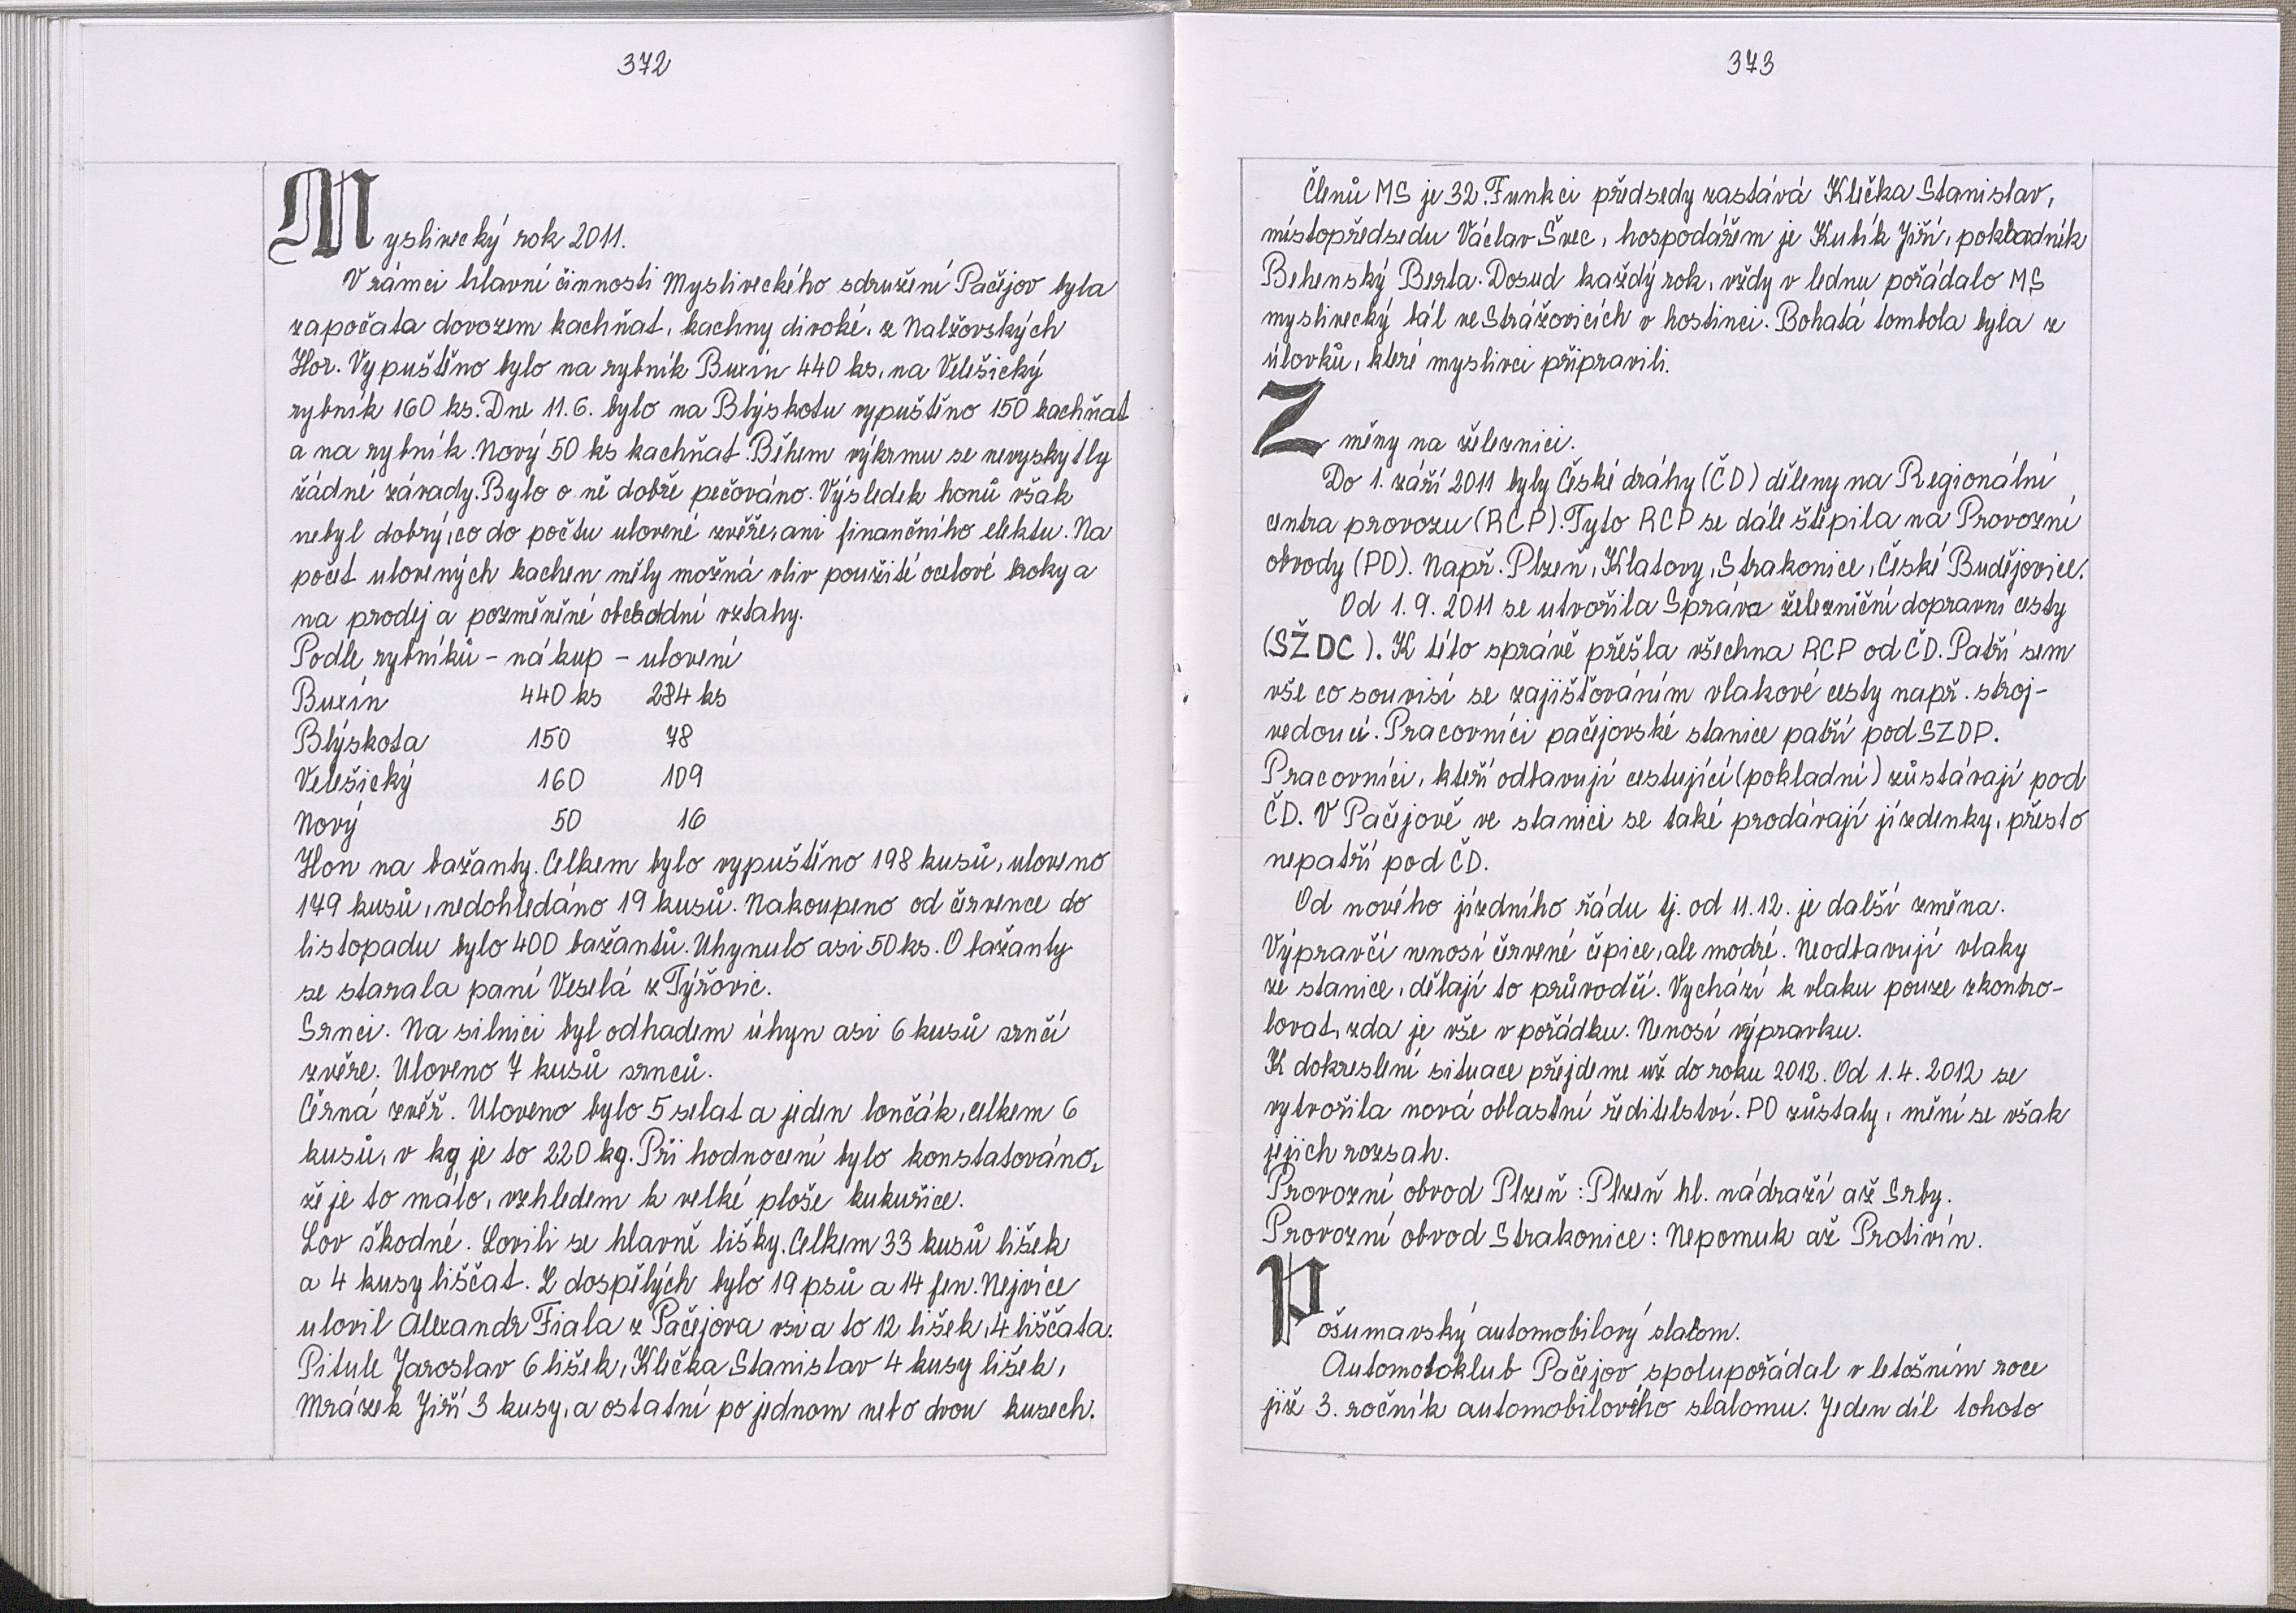 372
Myslivecký rok 2011.
V rámci hlavní činnosti Mysliveckého sdružení Pačejov byla
započata dovozem kachňat, kachny divoké, z Nalžovských
Hor. Vypuštěno bylo na rybník Buxín 440 ks, na Velešický
rybník 160 ks. Dne 11.6. bylo na Blýskotu vypuštěno 150 kachňat
a na rybník Nový 50 ks kachňat. Během výkrmu se nevyskytly
žádné závady. Bylo o ně dobře pečováno. Výsledek honů však
nebyl dobrý, co do počtu ulovené zvěře, ani finančního efektu. Na
počet ulovených kachen měly možná vliv použité ocelové broky a
na prodej a pozměněné obchodní vztahy.
Podle rybníků - nákup - ulovení
Buxín 440 ks 284 ks
Blýskota 150 78
Velešický 160 109
Nový 50 16
Hon na bažanty. Celkem bylo vypuštěno 198 kusů, uloveno
179 kusů, nedohledáno 19 kusů. Nakoupeno od července do
listopadu bylo 400 bažantů. Uhynulo asi 50 ks. O bažanty
se starala paní Veselá z Týřovic.
Srnci. Na silnici byl odhadem úhyn asi 6 kusů srnčí
zvěře. Uloveno 7 kusů srnců.
Černá zvěř. Uloveno bylo 5 selat a jeden lončák, celkem 6
kusů, v kg je to 220 kg. Při hodnocení bylo konstatováno,
že je to málo, vzhledem k velké ploše kukuřice.
Lov škodné. Lovili se hlavně lišky. Celkem 33 kusů lišek
a 4 kusy liščat. Z dospělých bylo 19 psů a 14 fen. Nejvíce
ulovil Alexandr Fiala z Pačejova vsi a to 12 lišek, 4 liščata.
Pitule Jaroslav 6 lišek, Klečka Stanislav 4 kusy lišek,
Mrázek Jiří 3 kusy, a ostatní po jednom nebo dvou kusech.
373
Členů MS je 32. Funkci předsedy zastává Klečka Stanislav,
místopředsedu Václav Švec, hospodářem je Kubík Jiří, pokladník
Behenský Berta. Dosud každý rok, vždy v lednu pořádalo MS
myslivecký bál ve Strážovicích v hostinci. Bohatá tombola byla z
úlovků, které myslivci připravili.
Změny na železnici.
Do 1. září 2011 byly České dráhy (ČD) děleny na Regionální
centra provozu (RCP). Tyto RCP se dále štěpila na Provozní
obvody (PO). Např. Plzeň, Klatovy, Strakonice, České Budějovice.
Od 1.9. 2011 se utvořila Správa železniční dopravní cesty
(SŽDC). K této správě přešla všechna RCP od ČD. Patří sem
vše co souvisí se zajišťováním vlakové cesty např. stroj-
vedoucí. Pracovníci pačejovské stanice patří pod SZDP.
Pracovníci, kteří odbavují cestující (pokladní) zůstávají pod
ČD. V Pačejově ve stanici se také prodávají jízdenky, přesto
nepatří pod ČD.
Od nového jízdního řádu tj. od 11.12. je další změna.
Výpravčí nenosí červené čepice, ale modré. Neodbavují vlaky
ze stanice, dělají to průvodčí. Vychází k vlaku pouze zkontro-
lovat, zda je vše v pořádku. Nenosí výpravku.
K dokreslení situace přejdeme už do roku 2012. Od 1.4. 2012 se
vytvořila nová oblastní ředitelství. PO zůstaly, mění se však
jejich rozsah.
Provozní obvod Plzeň: Plzeň hl. nádraží až Srby.
Provozní obvod Strakonice: Nepomuk až Protivín.
Pošumavský automobilový slalom.
Automotoklub Pačejov spolupořádal v letošním roce
již 3. ročník automobilového slalomu. Jeden díl tohoto